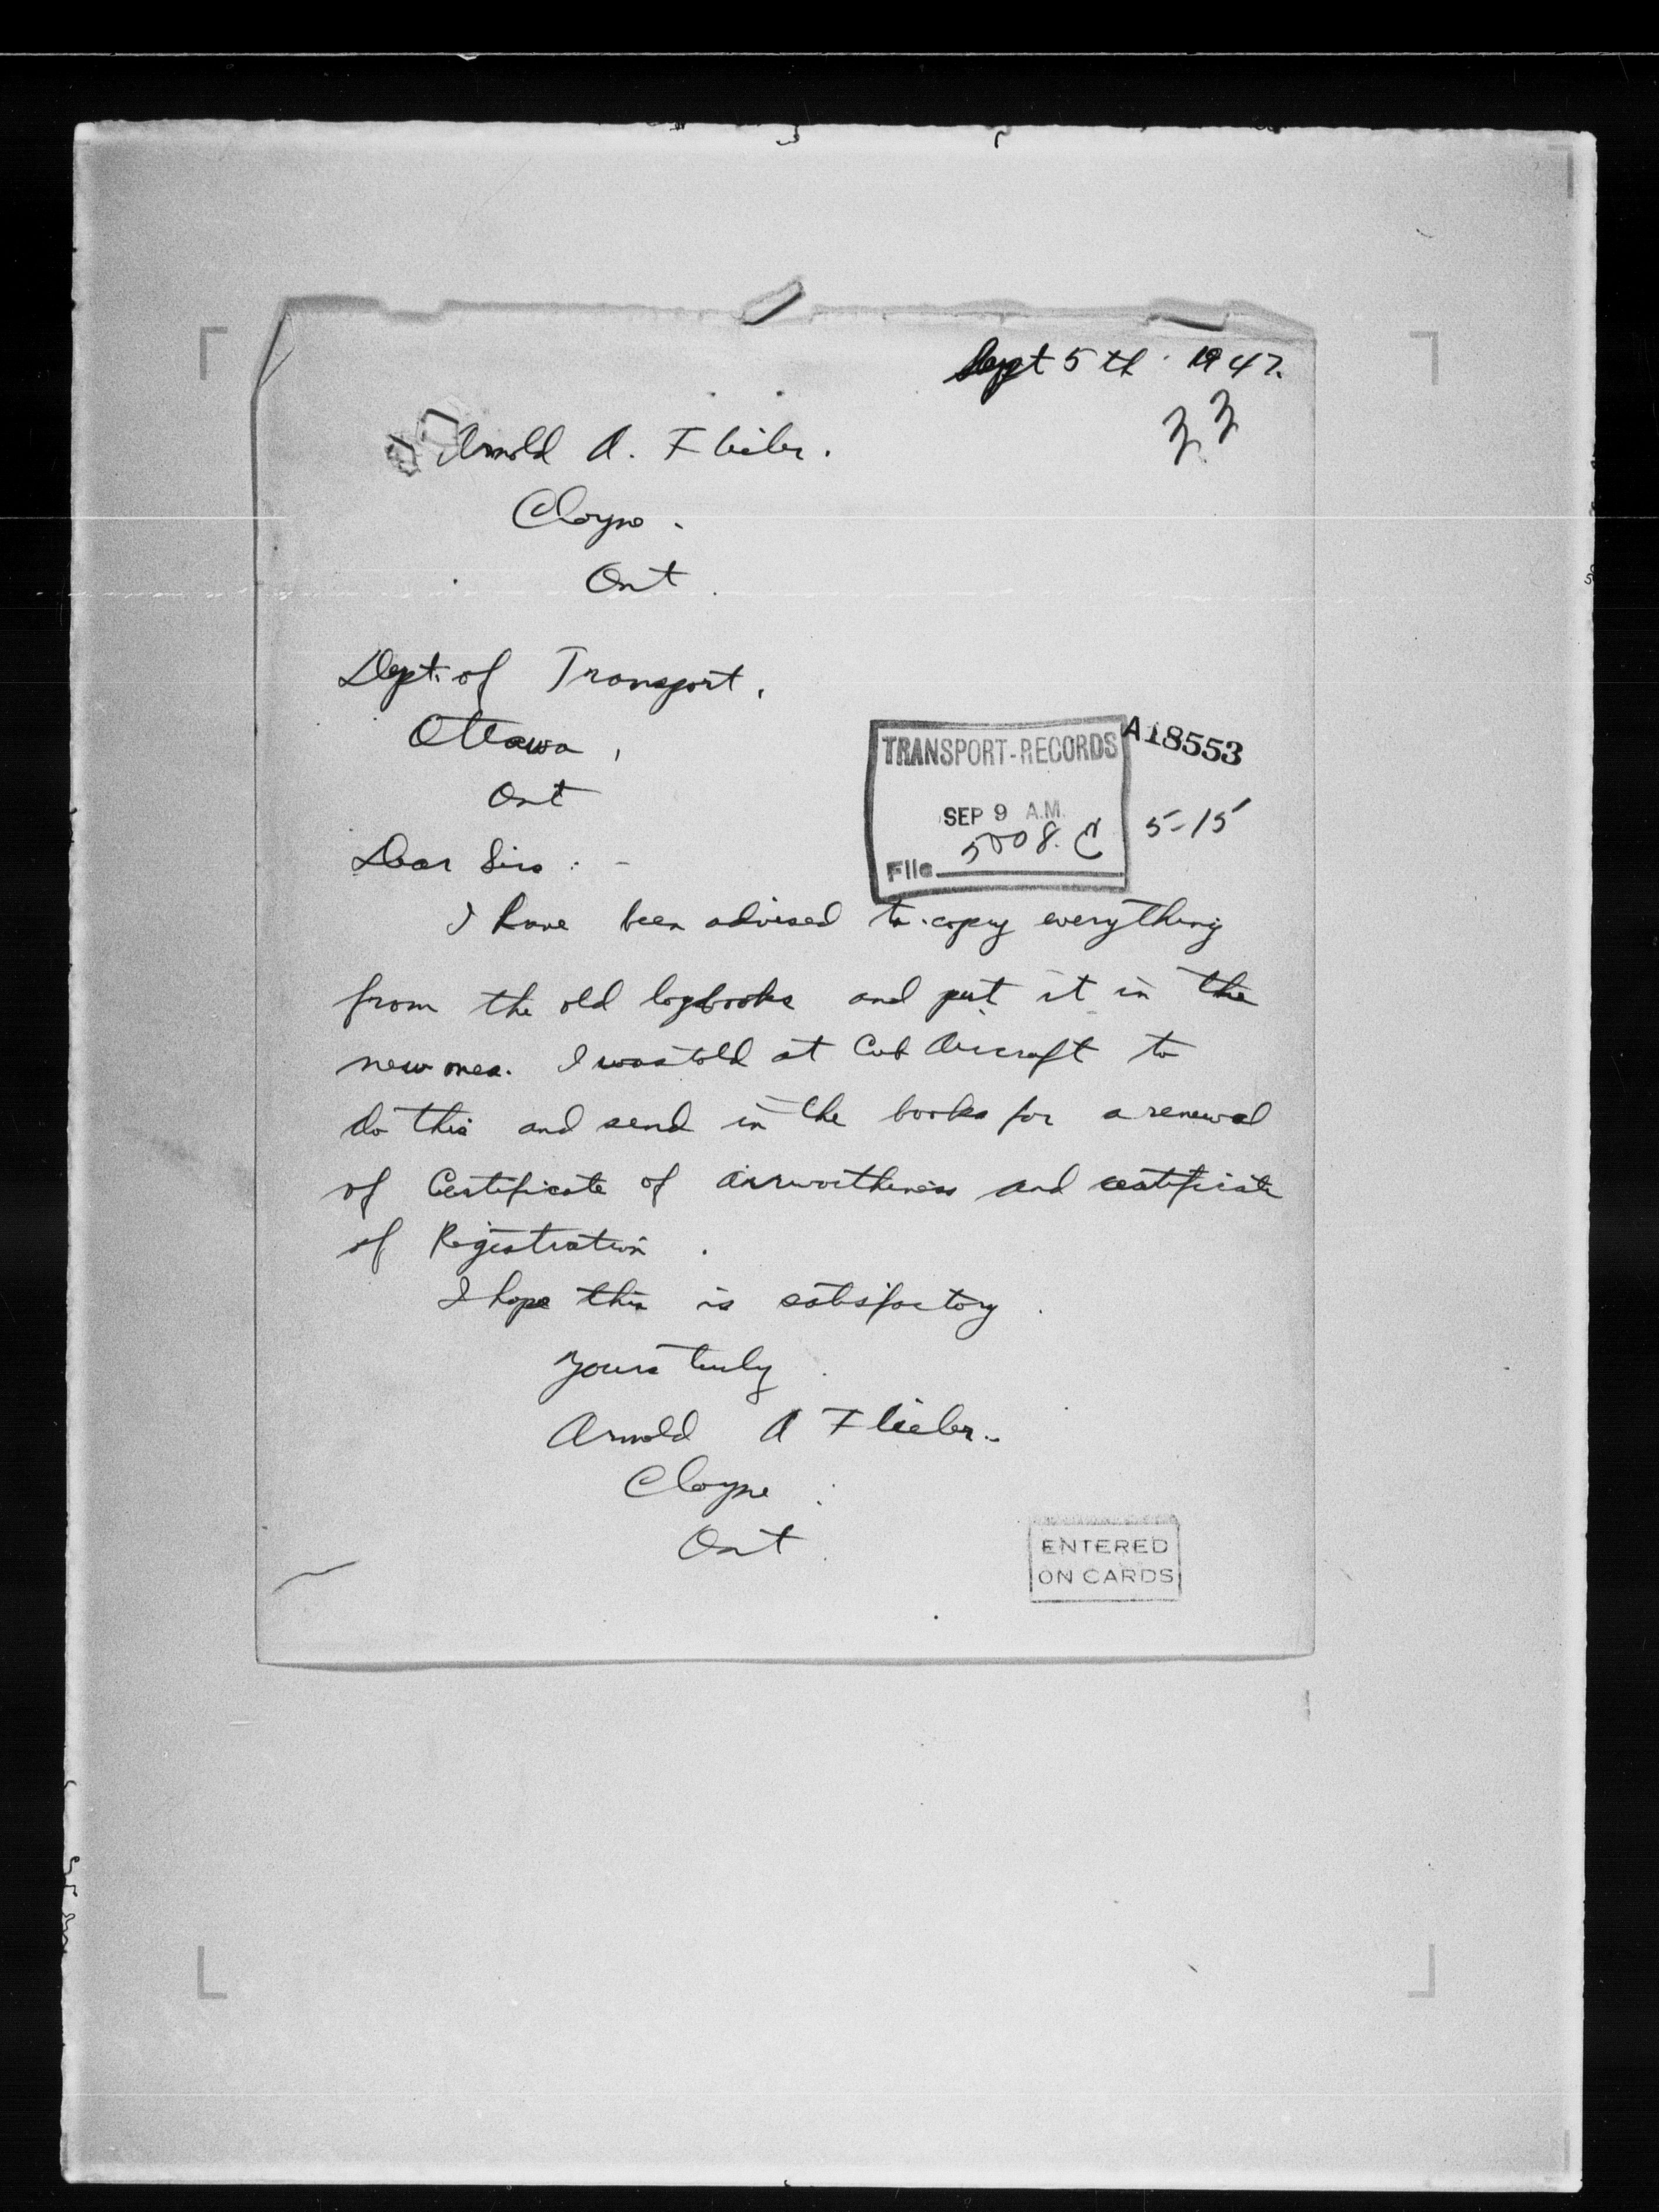 Sept 5th 1947.
33
Arnold A. Flieler.
Cloyne.
Ont.
Dept. of Transport,
Ottawa,
Ont
TRANSPORT-RECORDS
A18553
SEP 9 A.M.
5008. C
5-15
File
Dear Sirs:-
I have been advised to copy everything
from the old logbooks and put it in the
new ones. I was told at Cub Aircraft to
do this and send in the books for a renewal
of Certificate of airworthiness and certificate
of Registration.
I hope this is satisfactory.
Yours truly
Arnold A Flieler.
Cloyne
Ont.
ENTERED
ON CARDS